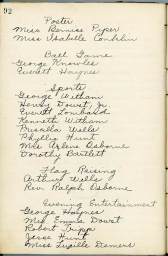 92
Poster
Miss Bernise Piper
Miss Isabelle Conklin
Ball Game
George Knowles
Everett Haynes
Sports
George Witham
Henry Dowst, Jr.
Everett Lombard
Kenneth Witham
Priscilla Wells
Phyllis Hunt
Mrs Arlene Osborne
Dorothy Bartlett
Flag Raising
Arthur Wells
Rev. Ralph Osborne
Evening Entertainment
George Haynes
Mrs. Emma Dowst
Robert Tripp
Jesse Hunt
Miss Lucille Demers